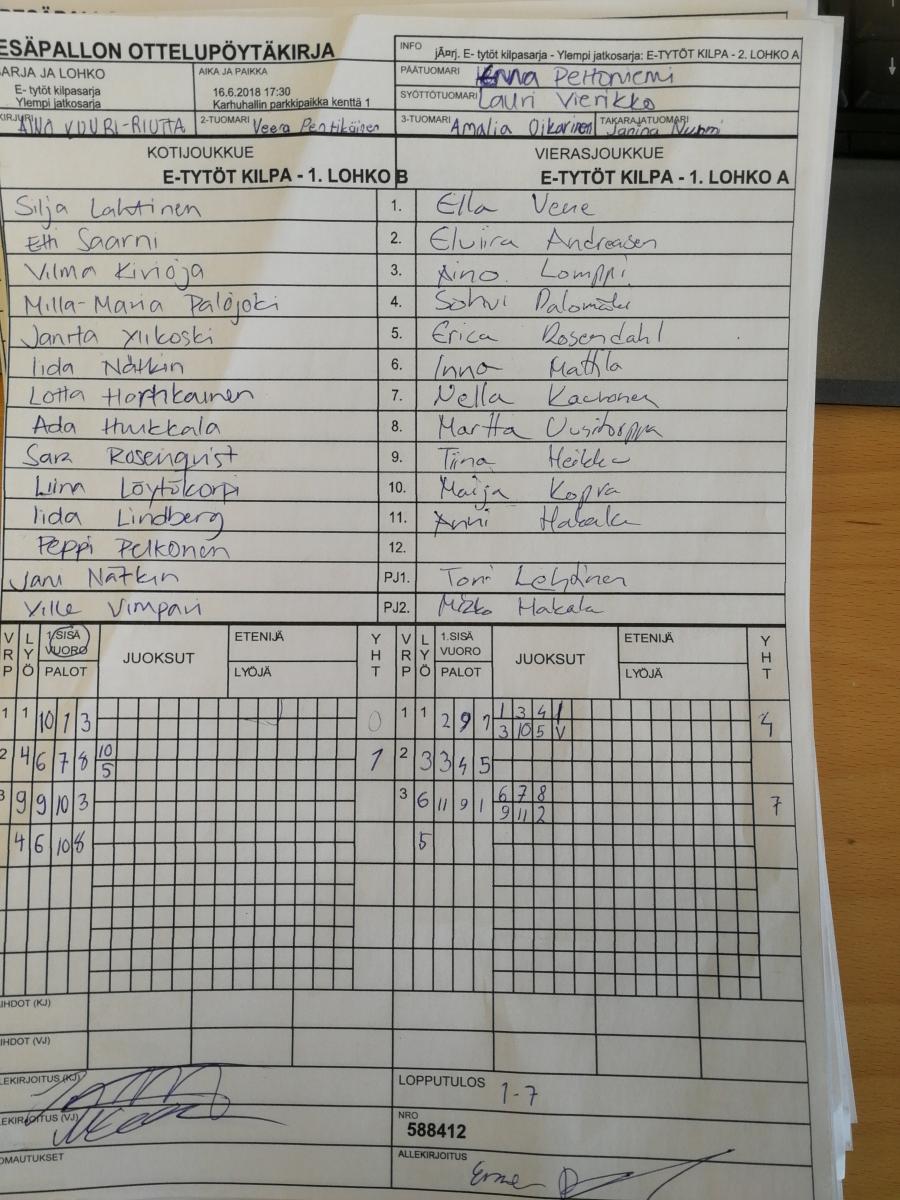 ESÄPALLON OTTELUPÖYTÄKIRJA
INFO jÃ¤rj. E- tytöt kilpasarja - Ylempi jatkosarja: E-TYTÖT KILPA - 2. LOHKO A
ARJA JA LOHKO
E- tytöt kilpasarja
Ylempi jatkosarja
AIKA JA PAIKKA
16.6.2018 17:30
Karhuhallin parkkipaikka kenttä 1
PÄÄTUOMARI Enna Peltoniemi
SYÖTTÖTUOMARI Lauri Vierikko
KIRJURI AINO VUORI-RIUTTA
2-TUOMARI Veera Pentikäinen
3-TUOMARI Amalia Oikarinen
TAKARAJATUOMARI Janina Nurmi
KOTIJOUKKUE VIERASJOUKKUE
E-TYTÖT KILPA - 1. LOHKO B E-TYTÖT KILPA - 1. LOHKO A
Silja Lahtinen 1. Ella Vene
Etti Saarni 2. Elviira Andreasen
Vilma Kivioja 3. Aino Lomppi
Milla-Maria Palojoki 4. Sohvi Palomäki
Janita Ylikoski 5. Erica Rosendahl
Iida Nätkin 6. Inna Mattila
Lotta Hartikainen 7. Nella Kauhonen
Ada Huukkala 8. Martta Uusitorppa
Sara Rosenqvist 9. Tiina Heikka
Liina Löytökorpi 10. Maija Kopra
Iida Lindberg 11. Anni Hakala
Peppi Pelkonen 12.
Jani Nätkin PJ1. Toni Lehtinen
Ville Vimpari PJ2. Mizko Hakala
VRP LYÖ 1.SISÄ VUORO PALOT JUOKSUT ETENIJÄ LYÖJÄ YHT VRP LYÖ 1.SISÄ VUORO PALOT JUOKSUT ETENIJÄ LYÖJÄ YHT
1 1 10 1 3 0 1 1 2 9 7 1 3 4 1 4
3 10 5 V
2 4 6 7 8 10 1 2 3 3 4 5
5
3 9 9 10 3 3 6 11 9 1 6 7 8 7
9 11 2
4 6 10 8 5
IHDOT (KJ)
IHDOT (VJ)
LEKIRJOITUS (KJ)
LOPPUTULOS 1-7
LEKIRJOITUS (VJ)
NRO
588412
OMAUTUKSET
ALLEKIRJOITUS